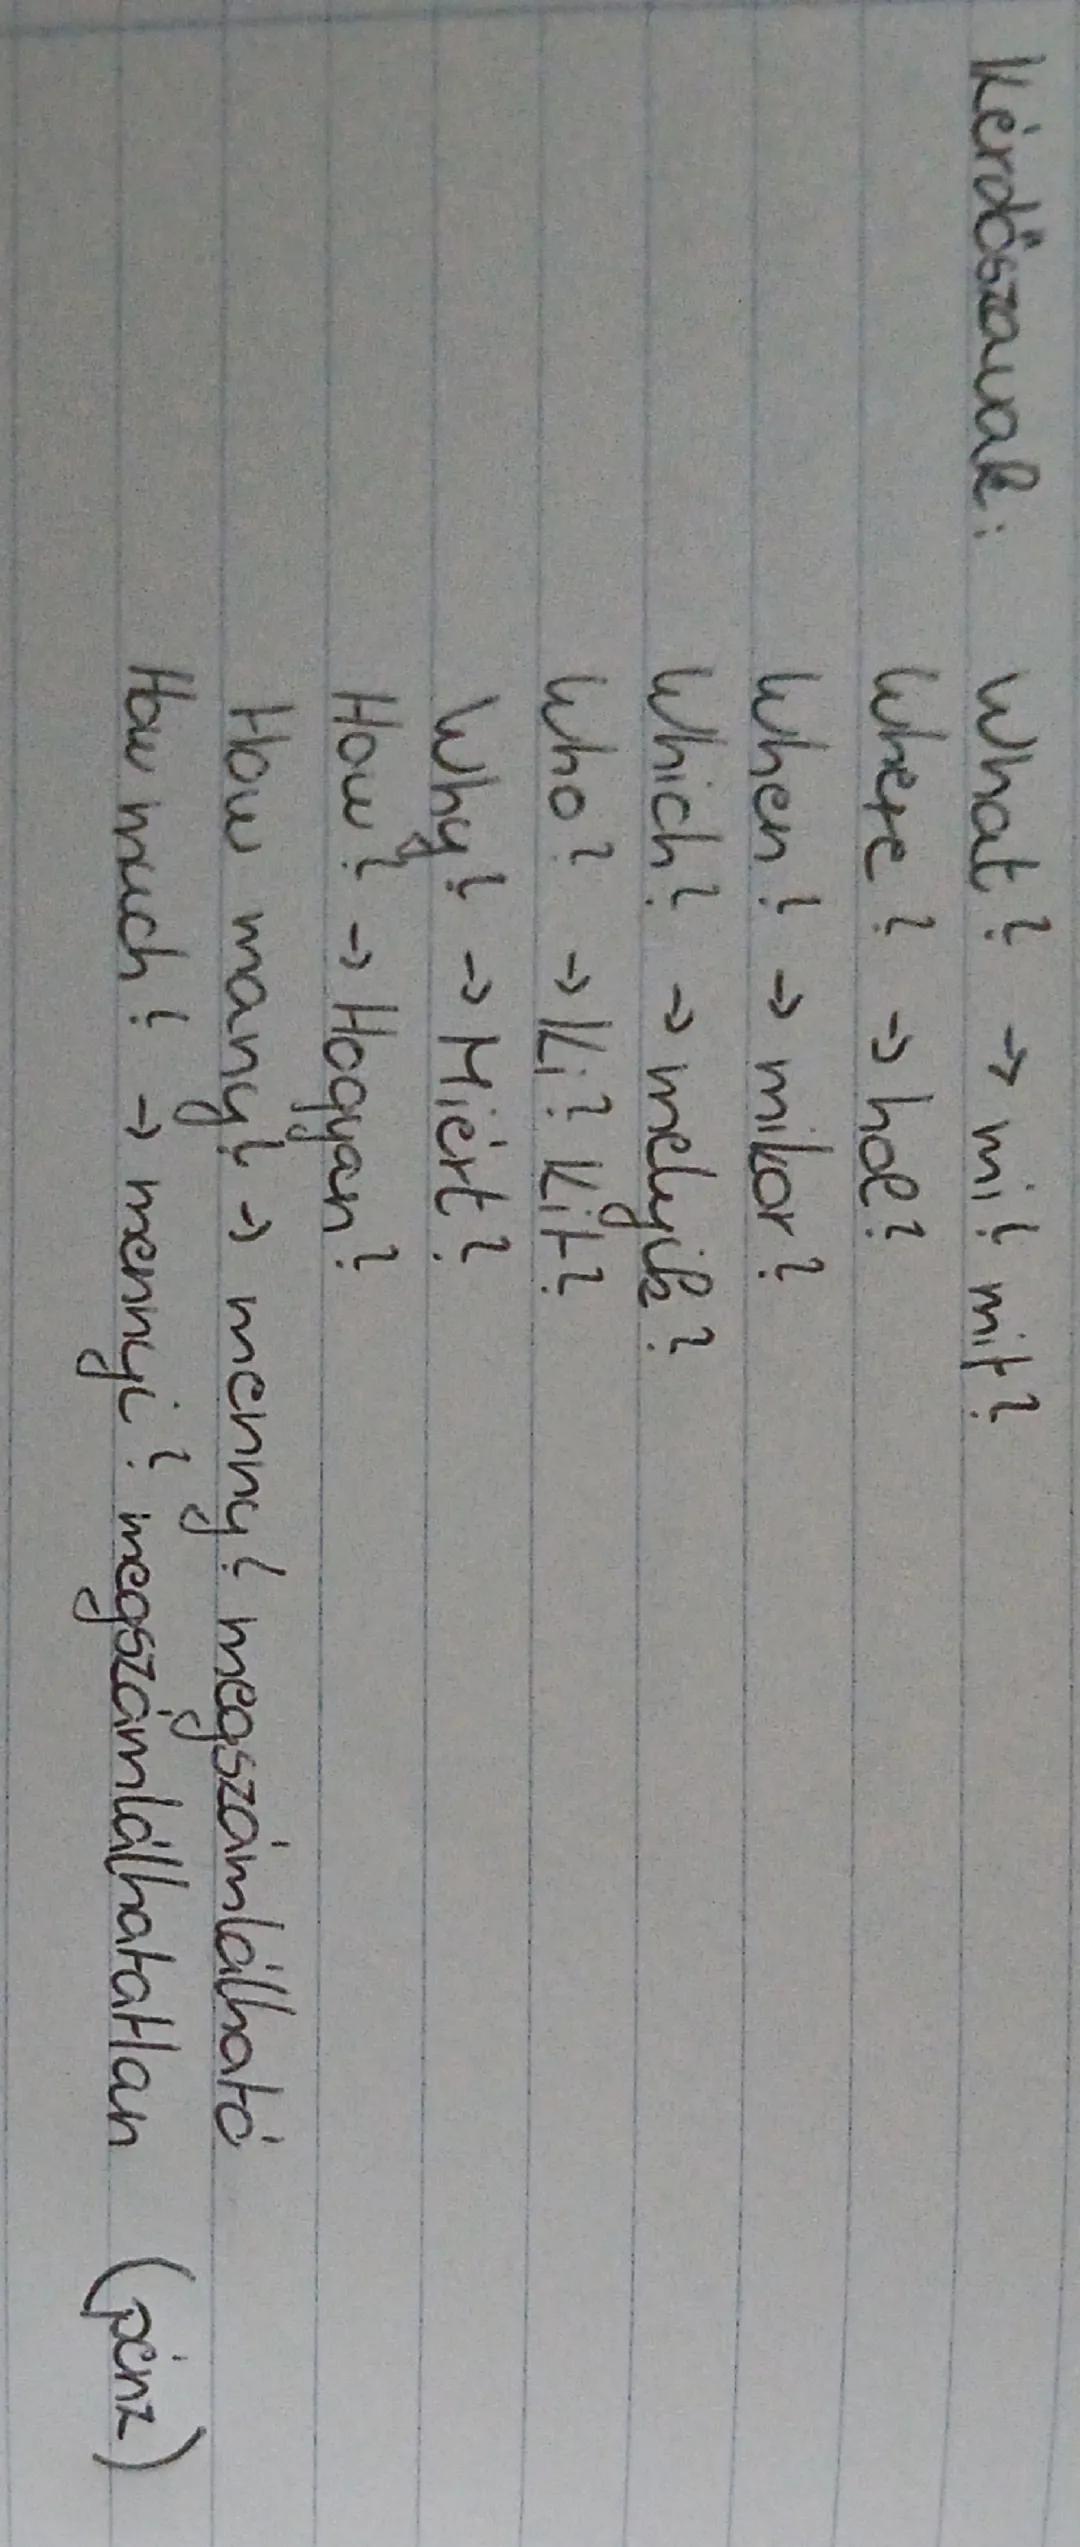 Kérdőszavak: What? → mi? mit?
Where? → hol?
When? → mikor?
Which? → melyik?
Who? → Ki? Kit?
Why? → Miért?
How? → Hogyan?
How many? → menny? megszámlálható
How much? → mennyi? megszámlálhatatlan (pénz)